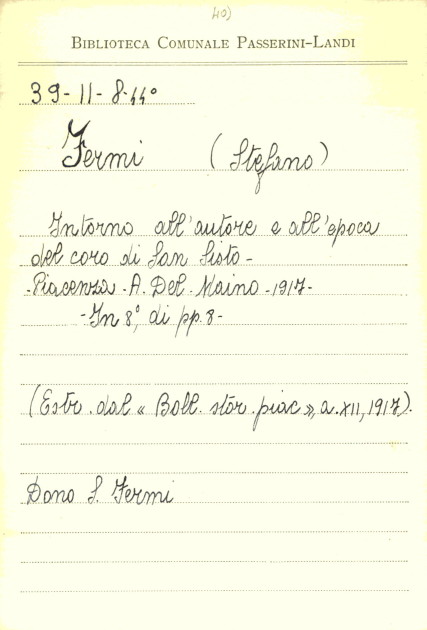 40)
BIBLIOTECA COMUNALE PASSERINI-LANDI
39-11-8.44°
Fermi (Stefano)
Intorno all'autore e all'epoca
del coro di San Sisto-
-Piacenza.A. Del. Maino-1917-
-In 8°, di pp. 8-
(Estr. dal « Boll. stor. piac », a. XII, 1917).
Dono S. Fermi